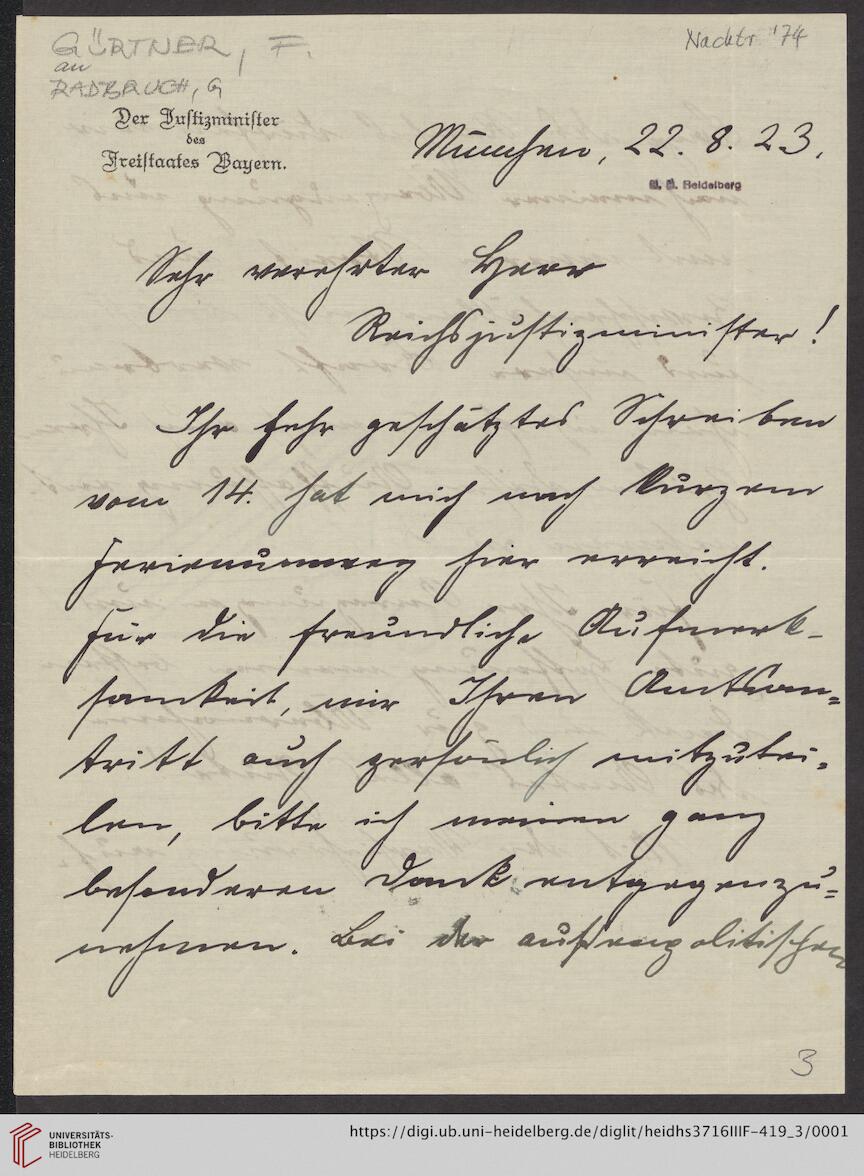 GÜRTNER, F.
an
RADBRUCH, G
Nachtr. '74
Der Justizminister
des
Freistaates Bayern.
München, 22. 8. 23.
U. B. Heidelberg
Sehr verehrter Herr
Reichsjustizminister!
Ihr sehr geschätztes Schreiben
vom 14. hat mich nach kurzem
hier erreicht.
Für die freundliche Aufmerk-
samkeit, mir Ihren Amtsan-
tritt auch persönlich mitzutei-
len, bitte ich meinen ganz
besonderen Dank entgegenzu-
nehmen. Bei der aussenpolitischen
3
UNIVERSITÄTS-
BIBLIOTHEK
HEIDELBERG
https://digi.ub.uni-heidelberg.de/diglit/heidhs3716IIIF-419_3/0001